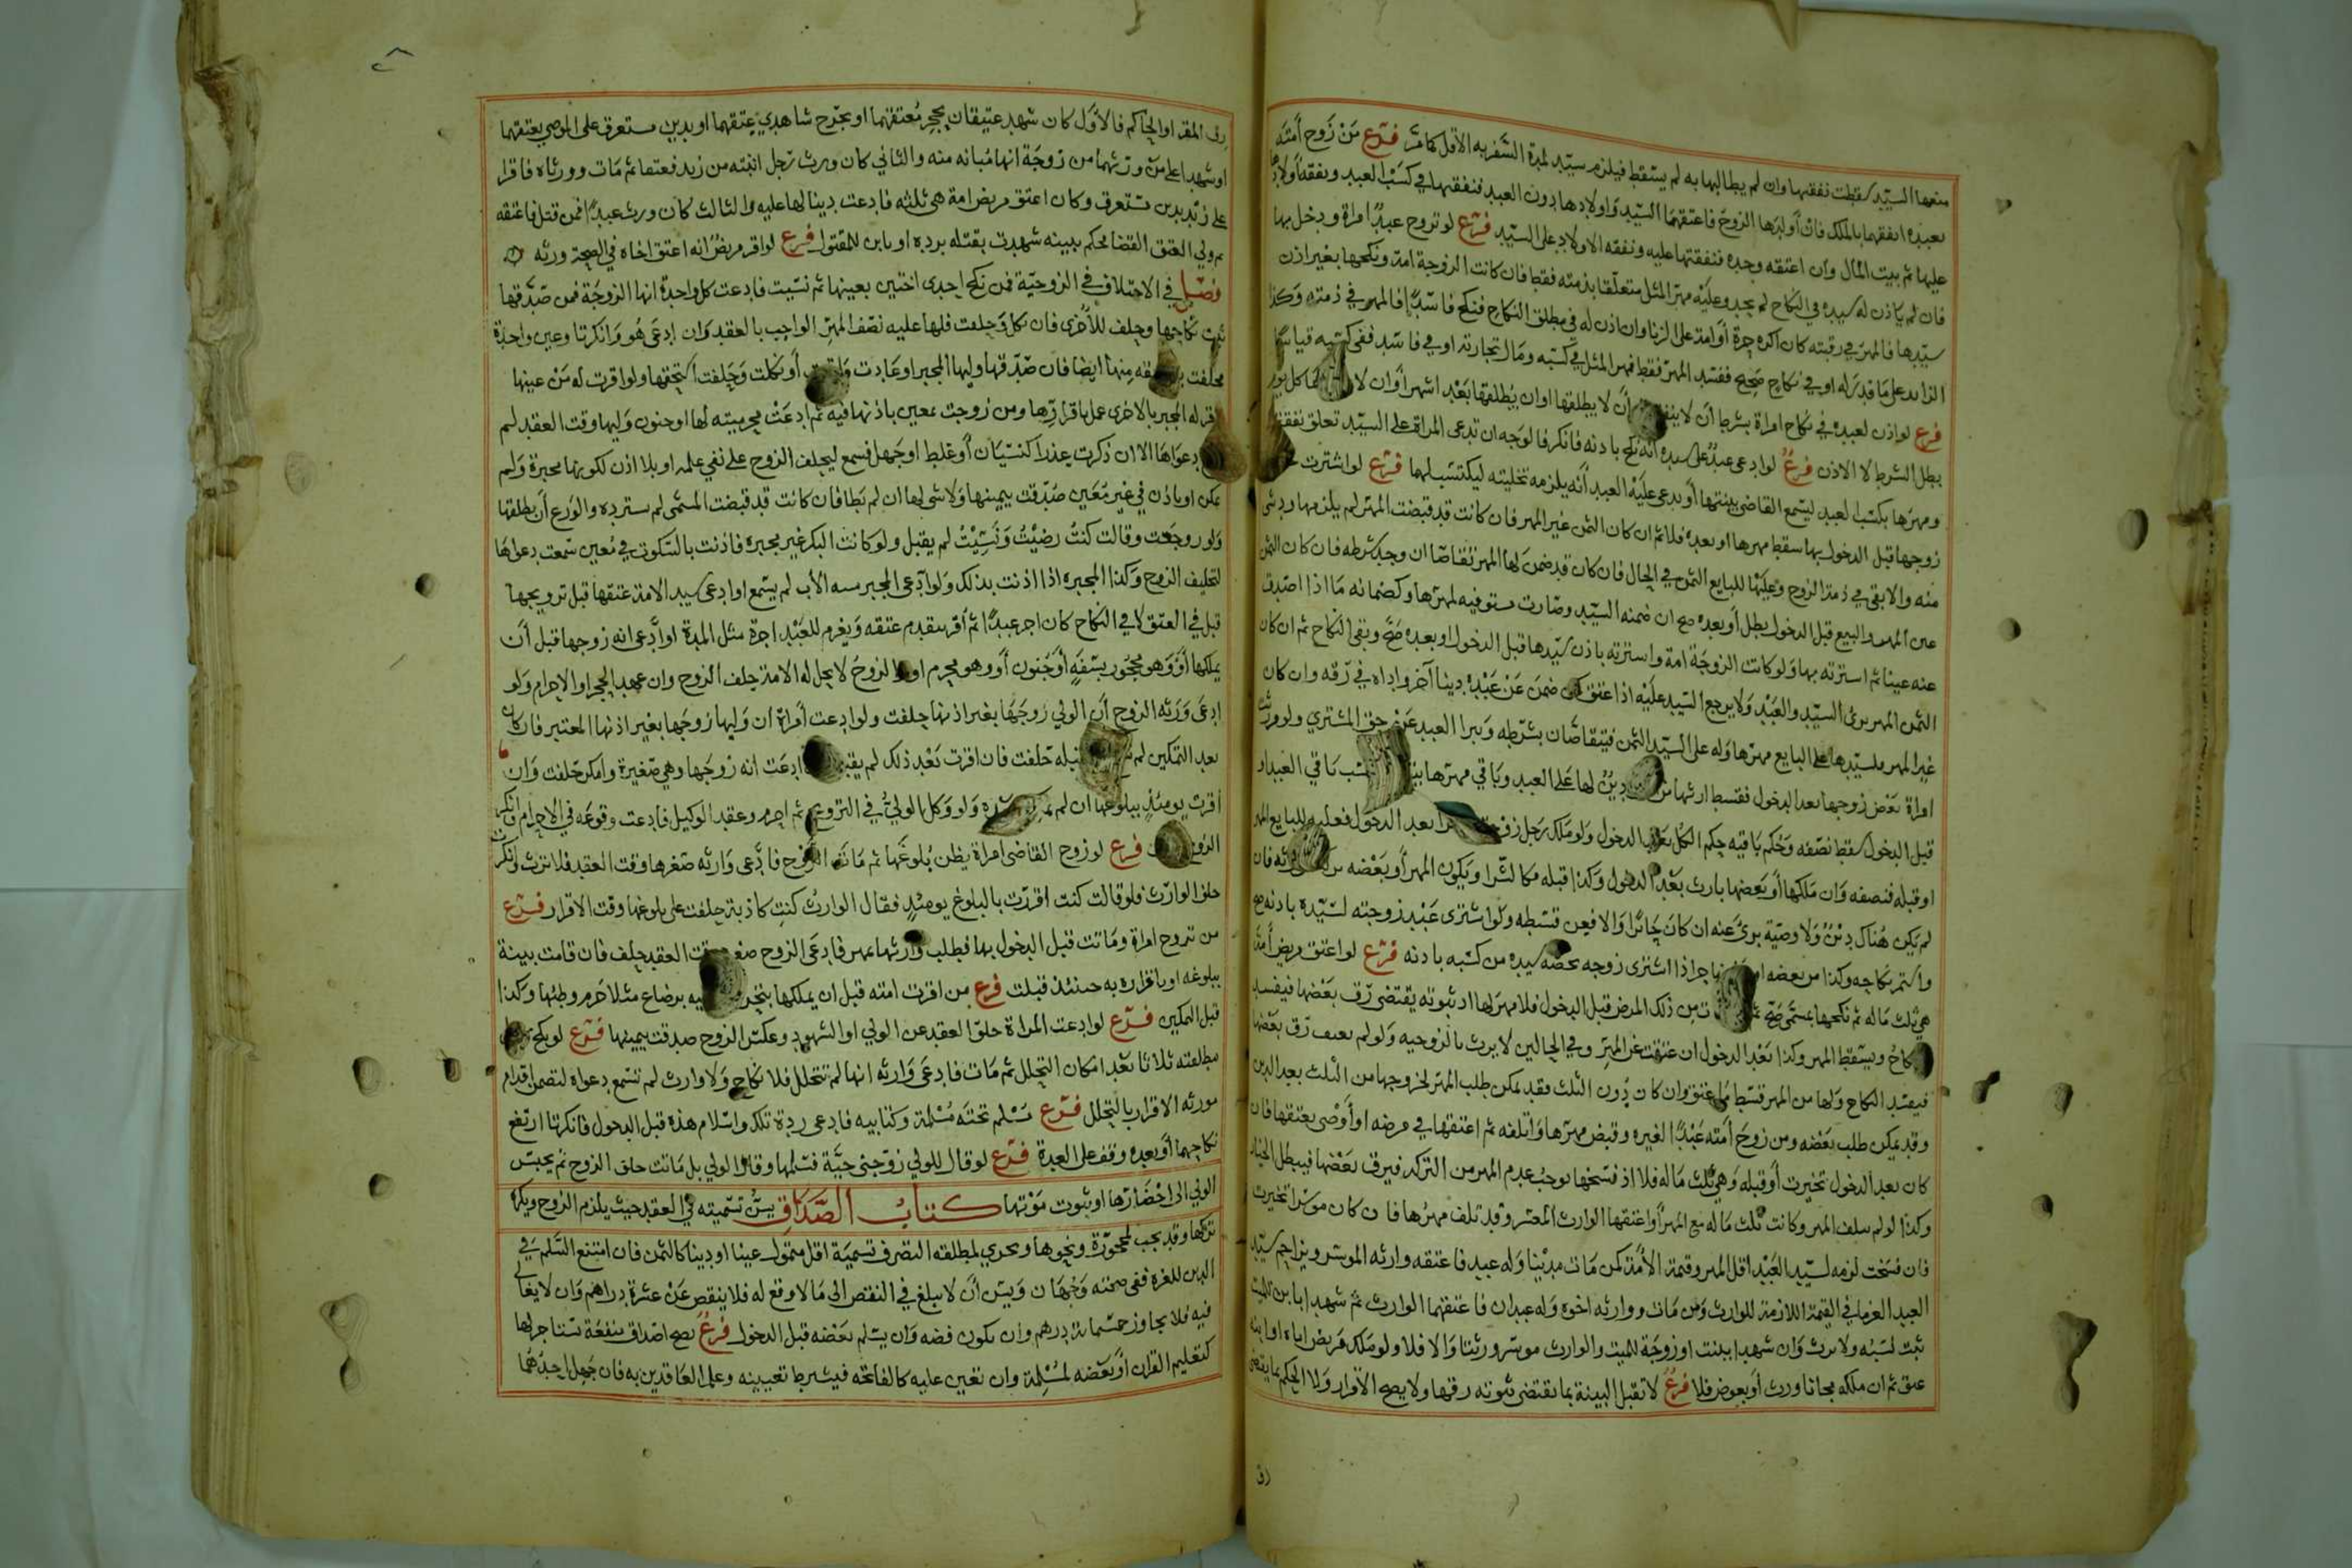 منعها السيد سقطت نفقتها وان لم يطالبها به لم يسقط فيلزم سيد لمدة السفر به الاقل كما مر فرع من زوج أمته
بعبده انفقهما بالملك فان أولدها الزوج فاعتقهما السيد واولادها دون العبد فنفقتها في كسب العبد ونفقة اولادها
عليها ثم بيت المال وان اعتقه وحده فنفقتها عليه ونفقة الاولاد على السيد فرع لو تزوج عبد امراة ودخل بها
فان لم ياذن له سيده في النكاح لم يحد وعليه مهر المثل متعلقا بذمته فقط فان كانت الزوجة امة ونكحها بغير اذن
سيدها فالمهر في رقبته كان اكره حرة أو امة على الزنا وان اذن له في مطلق النكاح فنكح فاسدا فالمهر في ذمته وكذا
الزايد على ما قدر له او في نكاح صحيح ففسد المهر فقط فمهر المثل في كسبه ومال تجارته او في فاسد ففي كسبه قياسا
فرع لو اذن لعبده في نكاح امراة بشرط أن لا ينفق أن لا يطلقها او ان يطلقها بعد اشهر أو ان لا
بطل الشرط لا الاذن فرع لو ادعى عبد على سيده أنه نكح باذنه فانكر فالوجه ان تدعى المراة على السيد تعلق نفقتها
ومهرها بكسب العبد ليسمع القاضي بينتها أو يدعى عليه العبد أنه يلزمه تخليته ليكتسب لهما فرع لو اشترت
زوجها قبل الدخول بها سقط مهرها او بعده فلا ثم ان كان الثمن غير المهر فان كانت قد قبضت المهر لم يلزمها رد شي
منه والا بقي في ذمة الزوج وعليها للبايع الثمن في الحال فان كان قد ضمن لها المهر تقاصا ان وجد شرطه فان كان الثمن
عين المهر والبيع قبل الدخول بطل أو بعده صح ان ضمنه السيد وصارت مستوفيه لمهرها وكضمانه ما اذا اصدق
عنه عينا ثم اشترته بها ولو كانت الزوجة امة واشترته باذن سيدها قبل الدخول او بعده صح وبقى النكاح ثم ان كان
الثمن المهر برئ السيد والعبد ولا يرجع السيد عليه اذا عتق كمن ضمن عن عبده دينا آخر واداه في رقه وان كان
غير المهر فلسيدها على البايع مهرها وله على السيد الثمن فيتقاصان بشرطه ويبرا العبد عن حق المشتري ولو ورثت
امراة بعض زوجها بعد الدخول فقسط ارثها من دين لها على العبد وباقي مهرها كسب باقي العبد او
قبل الدخول سقط نصفه وحكم باقيه حكم الكل بعد الدخول ولو ملك رجل زوجته بعد الدخول فعليه للبايع المهر
او قبله فنصفه وان ملكها أو بعضها بارث بعد الدخول وكذا قبله فكالشرا ويكون المهر أو بعضه فان
لم يكن هناك دين ولا وصية برئ عنه ان كان حائزا والا فعن قسطه ولو اشترى عبد زوجته لسيده باذنه صح
واستمر نكاحه وكذا من بعضه حر اذا اشترى زوجه بحصة سيده من كسبه باذنه فرع لو اعتق مريض أمة
هي ثلث ماله ثم نكحها بمسمى صح من ذلك المرض قبل الدخول فلا مهر لها اذ ثبوته يقتضي رق بعضها فيفسد
النكاح ويسقط المهر وكذا بعد الدخول ان عفت عن المهر وفي الحالين لا يرث بالزوجيه ولو لم تعف رق بعضها
فيفسد النكاح ولها من المهر قسط ما عتق وان كان دون الثلث فقد يمكن طلب المهر لخروجها من الثلث بعد الدين
وقد يمكن طلب بعضه ومن زوج أمته عبدا لغيره وقبض مهرها واتلفه ثم اعتقها في مرضه او أوصى بعتقها فان
كان بعد الدخول تخيرت أو قبله وهي ثلث ماله فلا اذ فسخها يوجب عدم المهر من التركة فيرق بعضها فيبطل الخيار
وكذا لو لم يتلف المهر وكانت ثلث ماله مع المهر أو اعتقها الوارث المعسر وقد تلف مهرها فان كان موسرا تخيرت
فان فسخت لزمه لسيد العبد اقل المهر وقيمة الأمة كمن مات مدينا وله عبيد فاعتقه وارثه الموسر ويزاحم سيد
العبد الغرما في القيمة اللازمة للوارث ومن مات ووارثه اخوه وله عبدان فاعتقهما الوارث ثم شهدا بابن للميت
ثبت نسبه ولا يرث وان شهدا ببنت او زوجة للميت والوارث موسر ورثتا والا فلا ولو ملك مريض اباه او ابنه
عتق ثم ان ملكه مجانا ورث أو بعوض فلا فرع لا تقبل البينة بما يقتضي ثبوته رقها ولا يصح الاقرار ولا الحكم بما يقتضي
رق
رق المقر او الحاكم فالاول كان شهد عتيقان بحجر معتقهما او بجرح شاهدي عتقهما او بدين مستغرق على الموصي بعتقهما
او شهدا على من ورثهما من زوجة انها مبانه منه والثاني كان ورث رجل ابنته من زيد فعتقا ثم مات وورثاه فاقرا
على زيد بدين مستغرق وكان اعتق مريض امة هي ثلثه فادعت دينا لها عليه والثالث كان ورث عبدا فمن قتل فاعتقه
ثم ولي العتق القضا فحكم ببينه شهدت بقتله برده او بابن للمقتول فرع لو اقر مريض انه اعتق اخاه في الصحة ورثه
فصل في الاختلاف في الزوجية فمن نكح احدى اختين بعينها ثم نسيت فادعت كل واحدة انها الزوجة فمن صدقها
ثبت نكاحها وحلف للأخرى فان نكل وحلفت فلها عليه نصف المهر الواجب بالعقد وان ادعى هو وانكرتا وعين واحدة
فحلفت منها ايضا فان صدقها وليها المجبر او عادت أو نكلت وحلفت استحقها ولو اقرت له من عينها
واقر له المجبر بالاخرى عمل باقرارها ومن زوجت بمعين باذنها فيه ثم ادعت محرميته لها او جنون وليها وقت العقد لم
دعواها الا ان ذكرت عذرا كنسيان أو غلط او جهل فسمع ليحلف الزوج على نفي علمه او بلا اذن لكونها مجبرة ولم
تمكن او باذن في غير معين صدقت بيمينها ولا شي لها ان لم يطا فان كانت قد قبضت المسمى لم يسترده والورع أن يطلقها
ولو رجعت وقالت كنت رضيت ونسيت لم يقبل ولو كانت البكر غير مجبرة فاذنت بالسكوت في معين سمعت دعواها
لتحليف الزوج وكذا المجبره اذا اذنت بذلك ولو ادعى المجبر الأب لم يسمع او ادعى سيد الامة عتقها قبل تزويجها
قبل في العتق لا في النكاح كان اجر عبدا ثم أقر بتقدم عتقه ويغرم للعبد اجرة مثل المدة او ادعى انه زوجها قبل أن
يملكها أو وهو محجور بسفه أو جنون أو وهو محرم او والزوج لا يحل له الامة حلف الزوج وان عهد الحجر او الاحرام ولو
ادعى ورثه الزوج أن الولي زوجها بغير اذنها حلفت ولو ادعت امراة ان وليها زوجها بغير اذنها المعتبر فان كان
بعد التمكين لم قبله حلفت فان اقرت بعد ذلك لم يقبل ادعت انه زوجها وهي صغيرة وامكن حلفت وان
أقرت يومئذ ببلوغها ان لم ولو وكل الولي في التزويج ثم احرم وعقد الوكيل فادعت وقوعه في الاحرام فانكر
الزوج فرع لو زوج القاضي امراة يظن بلوغها ثم مات الزوج فادعى وارثه صغرها وقت العقد فلا ترث وانكرت
حلف الوارث فلو قالت كنت اقررت بالبلوغ يومئذ فقال الوارث كنت كاذبة حلفت على بلوغها وقت الاقرار فرع
من تزوج امراة وماتت قبل الدخول بها فطلب وارثها بمهر فادعى الزوج صغره وقت العقد حلف فان قامت بينة
ببلوغه او باقراره به حينئذ قبلت فرع من اقرت امته قبل ان يملكها بتحريم عليه برضاع مثلا حرم وطئها وكذا
قبل التمكين فرع لو ادعت المراة خلو العقد عن الولي او الشهود وعكس الزوج صدقت بيمينها فرع لو نكح
مطلقته ثلاثا بعد امكان التحلل ثم مات فادعى وارثه انها لم تتحلل فلا نكاح ولا وارث لم تسمع دعواه لتضمن اقدام
مورثه الاقرار بالتحلل فرع مسلم تحته مسلمة وكتابيه فادعى ردة تلك واسلام هذه قبل الدخول فانكرتا ارتفع
نكاحهما أو بعده وقف على العدة فرع لو قال للولي زوجتي حية فسلمها وقال الولي بل ماتت حلف الزوج ثم يحبس
الولي الى احضارها او ثبوت موتها كتاب الصداق يسن تسميته في العقد حيث يلزم الزوج ويكره
تركها وقد يجب لمحجورة ونحوها ويجزي لمطلقه التصرف تسمية اقل متمول عينا او دينا كالثمن فان امتنع السلم في
الدين للغرة ففي صحته وجهان ويسن أن لا يبلغ في النقص الى ما لا وقع له فلا ينقص عن عشرة دراهم وان لا يغالى
فيه فلا يجاوز خمسماية درهم وان يكون فضه وان يسلم بعضه قبل الدخول فرع يصح اصداق منفعة تستاجر لها
كتعليم القران أو بعضه لمسلمة وان تعين عليه كالفاتحه فيشترط تعيينه وعلم العاقدين به فان جهل احدهما